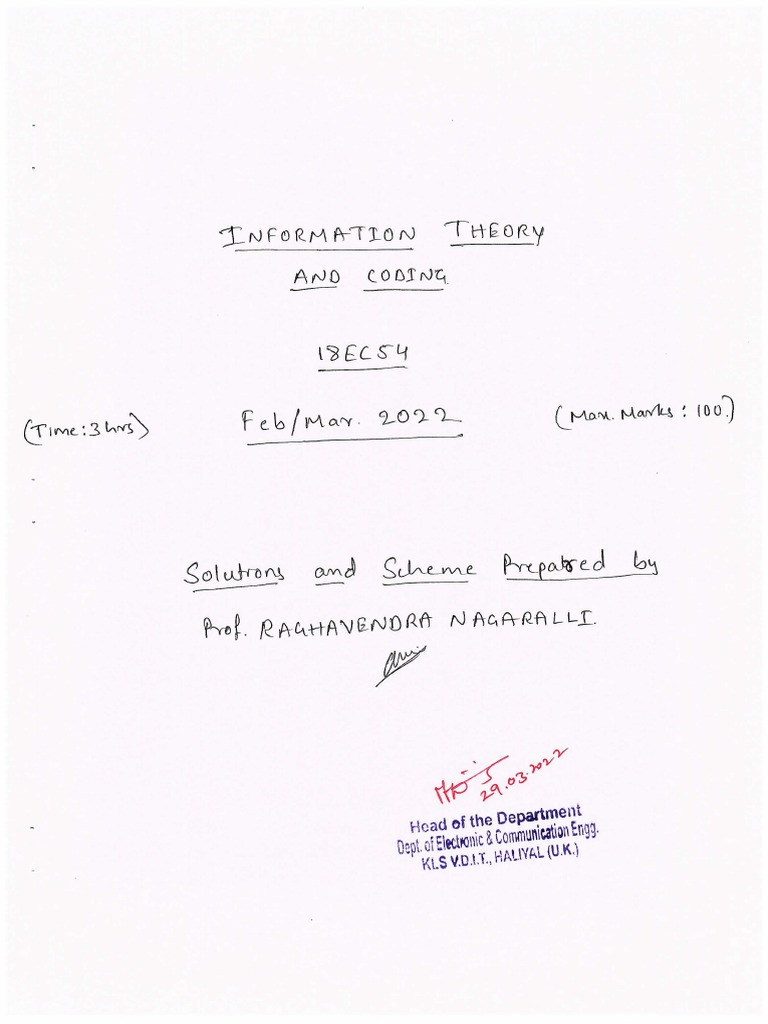 INFORMATION THEORY
AND CODING
18EC54
(Time: 3 hrs) Feb/Mar. 2022 (Max. Marks: 100.)
Solutions and Scheme Prepared by
Prof. RAGHAVENDRA NAGARALLI.
29.03.2022
Head of the Department
Dept. of Electronic & Communication Engg.
KLS V.D.I.T., HALIYAL (U.K.)